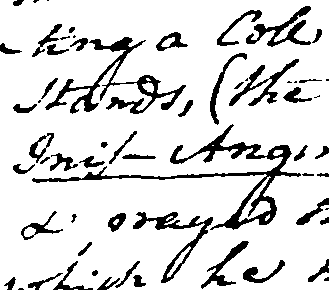 ting a Cole
Stands, (the
Inis- Ang
& prayed
which he